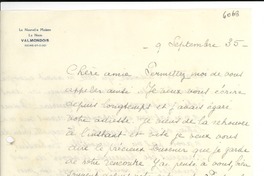 6068
La Nouvelle Maison
La Naze
VALMONDOIS
9 Septembre 35 -
Chère amie. Permettez moi de vous
appeler ainsi. Je veux vous écrire
depuis longtemps et j'avais égaré
votre adresse. Je viens de la retrouver
à l'instant et vite je veux vous
dire le précieux souvenir que je garde
de votre rencontre. J'ai pensé à vous,